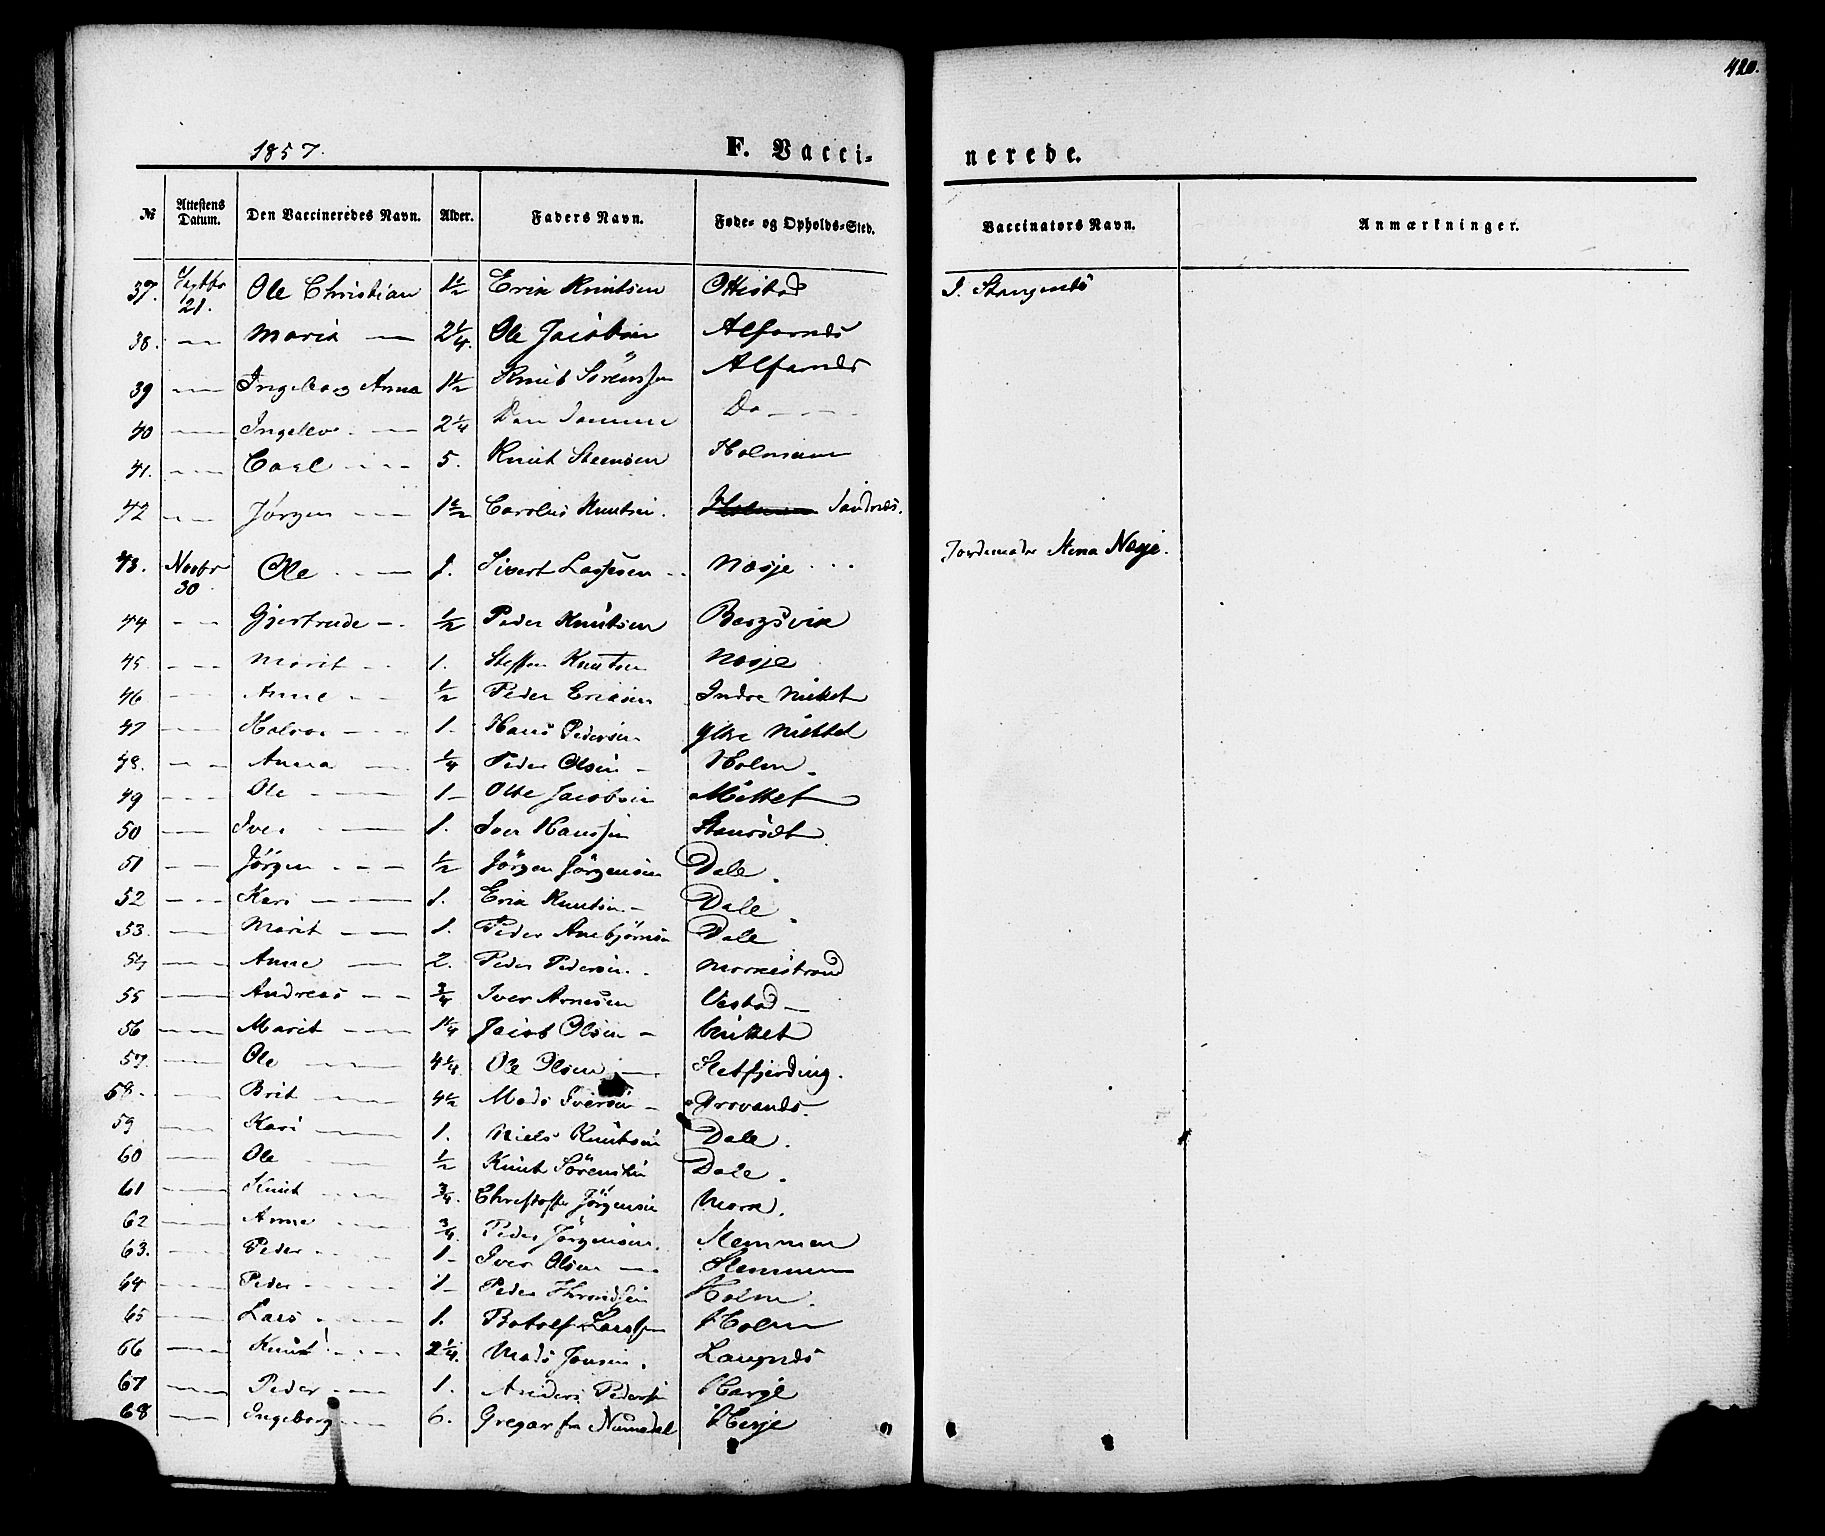 420.
1857. F. Vacci- nerede.
№ Attestens Datum. Den Vaccineredes Navn. Alder. Faders Navn. Føde- og Opholds-Sted. Vaccinators Navn. Anmærkninger.
37. Septbr 21. Ole Christian 1½ Erik Knutsen Ottestad J. Stangenæs
38. — — Marit — 2¼. Ole Jacobsen Alfarnæs
39 — — Ingeborg Anna 1½ Knut Sörenssen Alfarnæs
40 — — — — 2¼ Den Samme Do — — —
41. — — Carl — — — 5. Knut Steensen Holmem
42 — — Jørgen — — 1½ Carolus Knutsen. Sandnæs.
43. Novbr 30. Ole — — 1. Sivert Lassesen Næsje Jordemoder Stena Næsje.
44 — — Gjertrude — ½ Peder Knutsen Bergsvik
45. — — Marit — — 1. Steffen Knutsen Næsje
46 — — Anne — — ½ Peder Ericsen Indre Mittet
47 — — Halvor — — 1. Hans Pedersen Ytre Mittet
48. — — Anna — ¼ Peder Olsen — Holm.
49 — — Ole — — 1 — Jacobsen Mittet
50 — — Iver — — 1. Iver Hanssen
51 — — Jörgen — — ½ Jörgen Jörgensen Dale.
52 — — Kari — — 1. Erik Knutsen — Dale.
53. — — Marit — — 1. Peder Arnbjörnsen Dale
54 — — Anne — 2. Peder Pedersen. Morkestrand
55 — — Andreas — — ¾ Iver Arnesen Vestad —
56 — — Marit — — 1¼ Jacob Olsen — Mittet
57. — — Ole — 4¼ Ole Olsen — Sletfjerding.
58. — — Brit — — 4½ Mads Iversen — Grovanes.
59 — — Kari — 1. Niels Knutsen Dale.
60 — — Ole — ½ Knut Sörensen Dale.
61 — — Knut — — ¾. Christoffer Jörgensen Mork.
62 — — Anne — — ¾. Peder Jörgensen. Hemmen
63. — — Peder — — 1 — Iver Olsen — Stemmem
64 — — Peder — — 1 — Peder Throndsen Holm.
65 — — Lars — — 1. Botolf Larssen Holm
66 — — Knut — — 2¼. Mads Jonsen. Langnæs
67 — — Peder — — 1. Anders Pedersen
68 — — Ingeborg — 6. Gregar fra Numedal